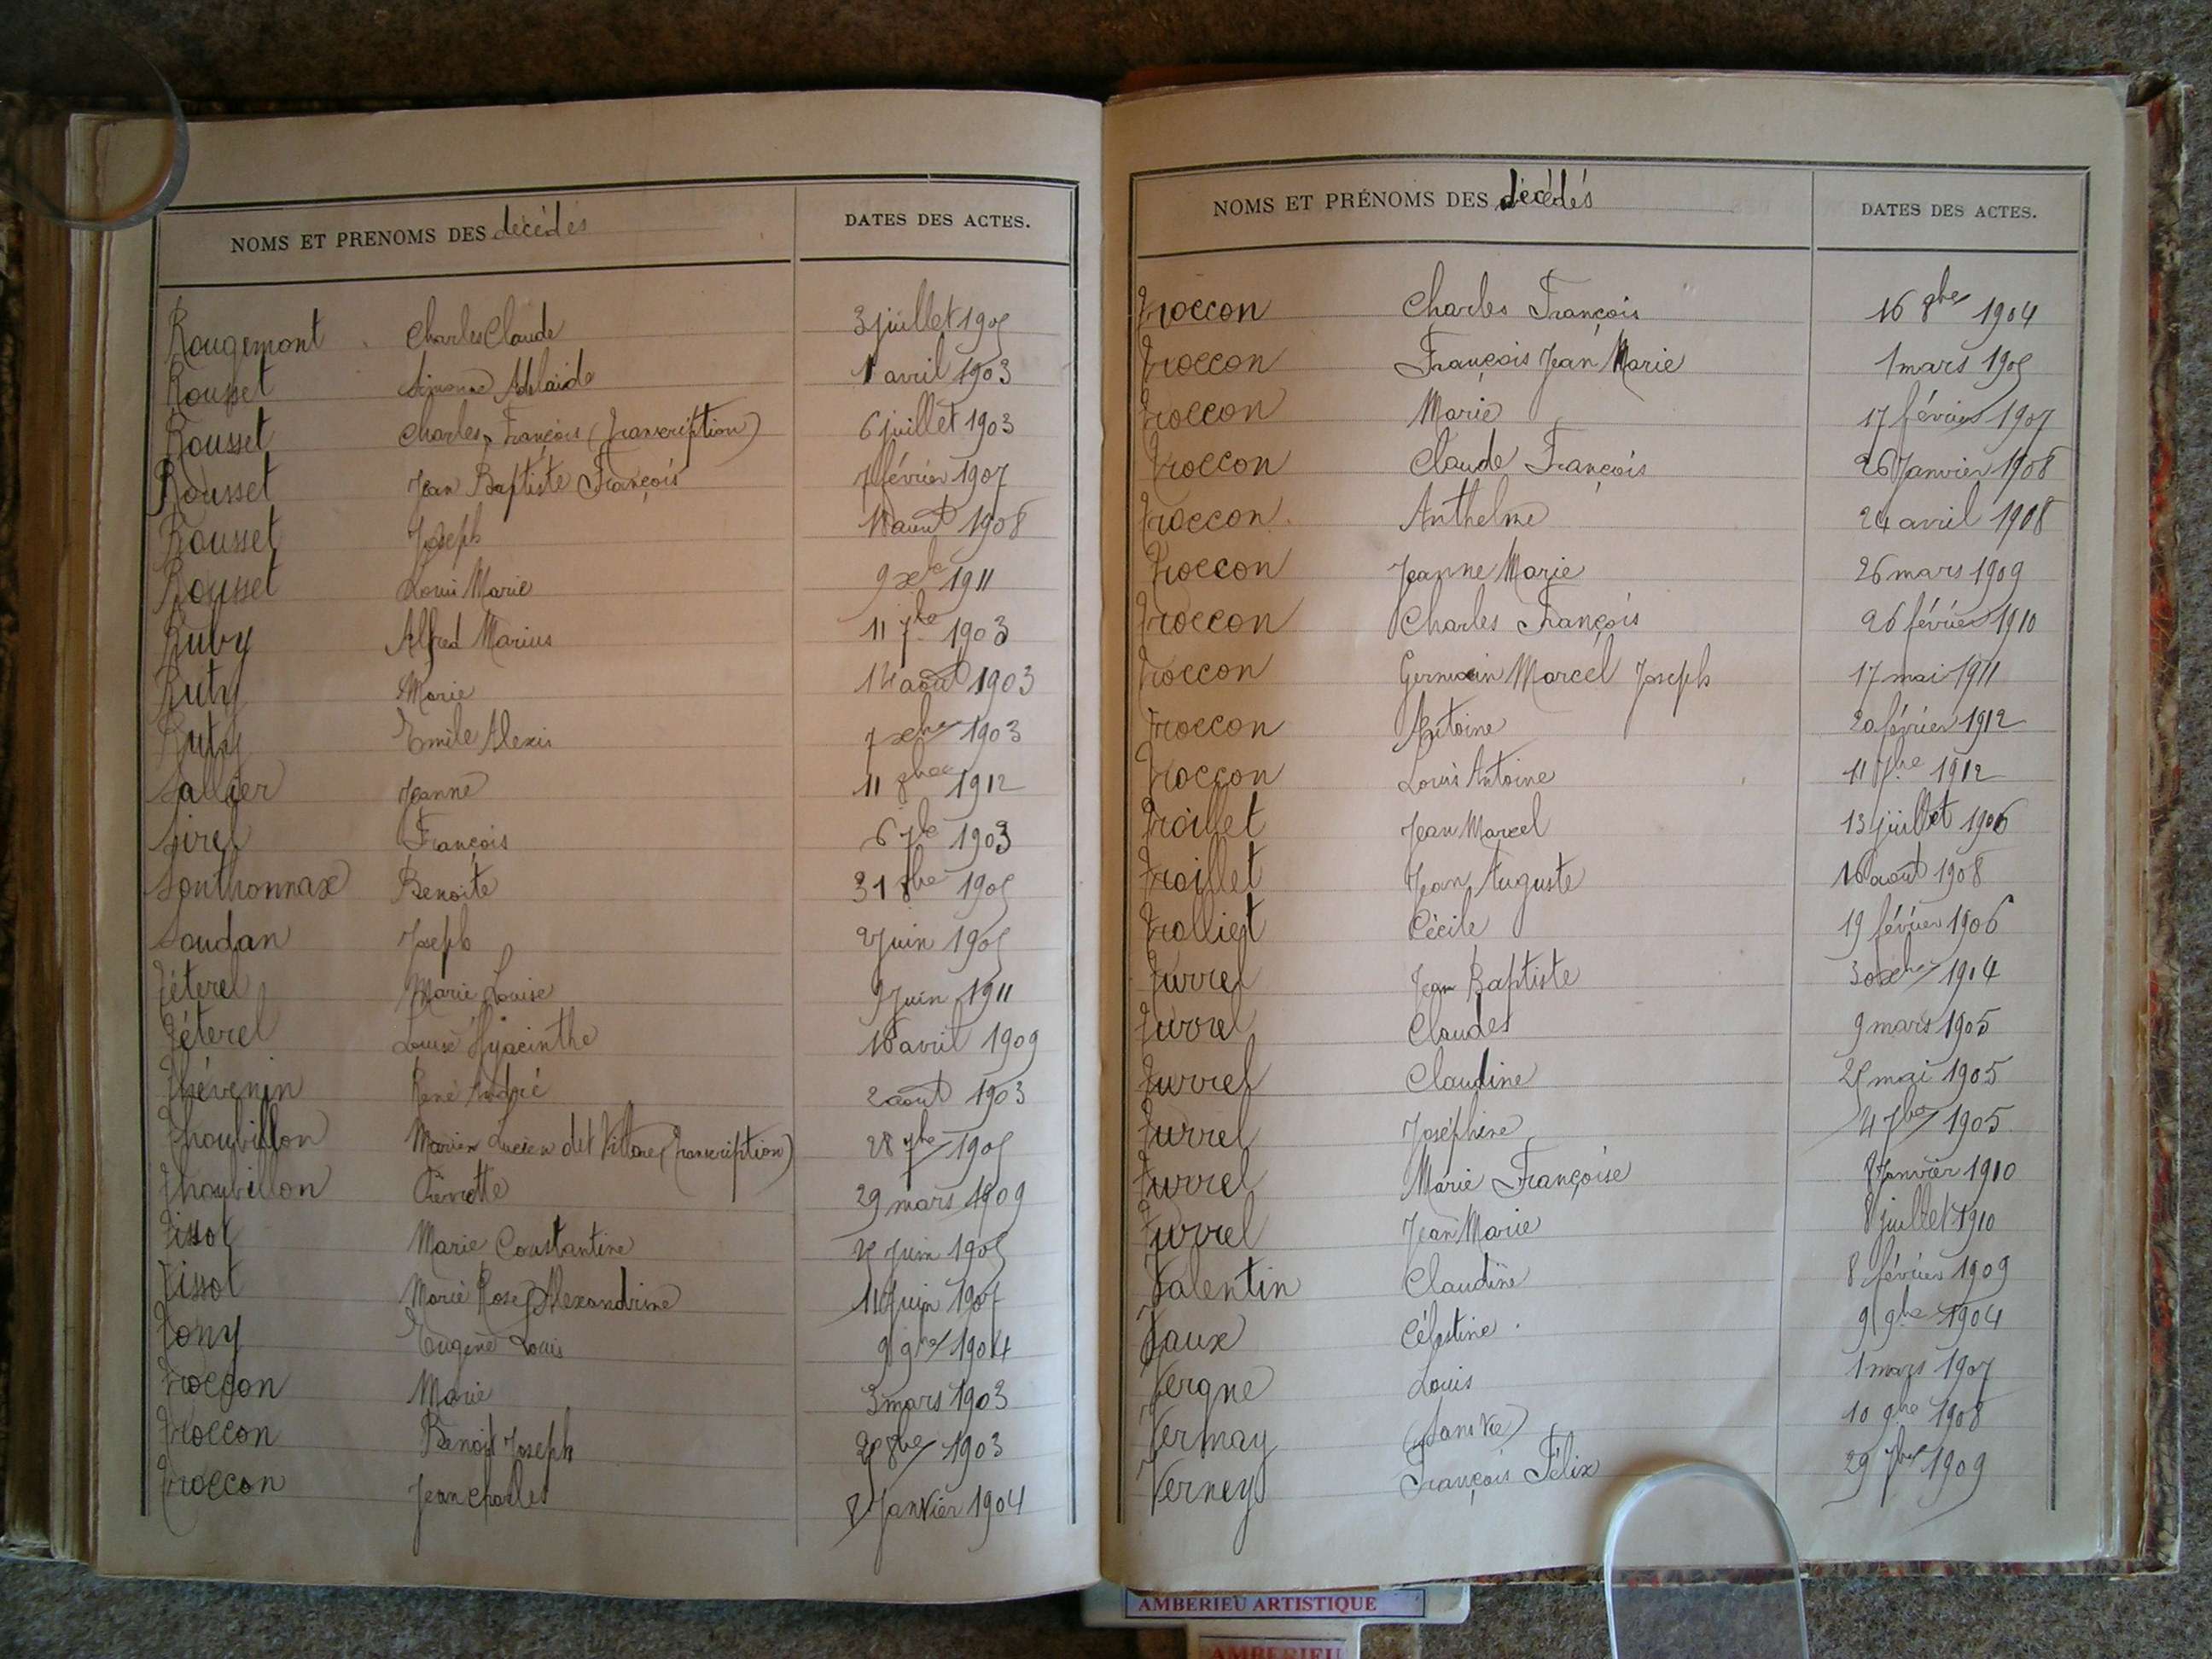 NOMS ET PRENOMS DES décédés DATES DES ACTES.
Rougemont Charles Claude 3 juillet 1905
Rousset Simonne Adélaide 1 avril 1903
Rousset Charles François (Transcription) 6 juillet 1903
Rousset Jean Baptiste François 7 février 1907
Rousset Joseph 18 aout 1908
Rousset Louis Marie 9 xbre 1911
Ruby Alfred Marius 11 7bre 1903
Ruty Marie 14 aout 1903
Ruty Emile Alexis 7 xbre 1903
Sallier Jeanne 11 8bre 1912
Sirel François 6 7bre 1903
Sonthonnax Benoite 31 8bre 1905
Soudan Joseph 2 juin 1905
Téterel Marie Louise 9 juin 1911
Téterel Louise Hyacinthe 16 avril 1909
Thévenin René André 2 aout 1903
Thoubillon Marien Lucien (Transcription) 28 7bre 1905
Thoubillon Pierrette 29 mars 1909
Tissot Marie Constantine juin 1905
Tissot Marie Rose Alexandrine 11 juin 1907
Tony Eugène Louis 9 9bre 1904
Troccon Marie 3 mars 1903
Troccon Benoit Joseph 8bre 1903
Troccon Jean Charles 8 Janvier 1904
NOMS ET PRÉNOMS DES décédés DATES DES ACTES.
Troccon Charles François 16 8bre 1904
Troccon François Jean Marie 1 mars 1905
Troccon Marie 17 février 1907
Troccon Claude François 26 Janvier 1908
Troccon Anthelme 24 avril 1908
Troccon Jeanne Marie 26 mars 1909
Troccon Charles François 26 février 1910
Troccon Germain Marcel Joseph 17 mai 1911
Troccon Antoine 20 février 1912
Troccon Louis Antoine 11 7bre 1912
Troillet Jean Marcel 13 juillet 1906
Troillet Jean Auguste 16 aout 1908
Trolliet Cécile 19 février 1906
Turrel Jean Baptiste 30 xbre 1904
Turrel Claude 9 mars 1905
Turrel Claudine 25 mai 1905
Turrel Joséphine 4 7bre 1905
Turrel Marie Françoise 8 Janvier 1910
Turrel Jean Marie 8 juillet 1910
Valentin Claudine 8 février 1909
Vaux Célestine 9 9bre 1904
Vergne Louis 1 mars 1907
Vermay (Sans vie) 10 9bre 1908
Verney François Félix 29 7bre 1909
AMBERIEU ARTISTIQUE
AMBERIEU